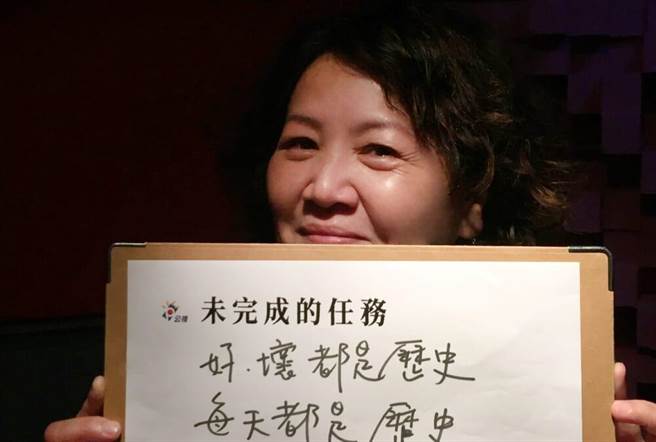 公視
未完成的任務
好.壞都是歷史
每天都是歷史